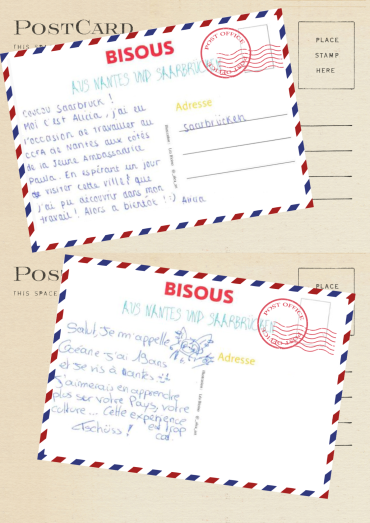 POSTCARD
THIS SPACE
PLACE
STAMP
HERE
BISOUS
AUS NANTES UND SAARBRÜCKEN
POST OFFICE
Coucou Saarbrück !
Moi c'est Alicia, j'ai eu
l'occasion de travailler au
CCFA de Nantes aux côtés
de la Jeune Ambassadrice
Paula. En espérant un jour
visiter cette ville que
j'ai pu découvrir dans mon
travail ! Alors à bientôt :)
Alicia
Adresse
Saarbrücken
POS
THIS SPACE
PLACE
BISOUS
AUS NANTES UND SAARBRÜCKEN
POST OFFICE
Salut, Je m'appelle
Océane j'ai 19ans
et je vis à Nantes
J'aimerais en apprendre
plus sur votre Pays, votre
culture... Cette expérience
est trop
cool
Tschüss !
Adresse